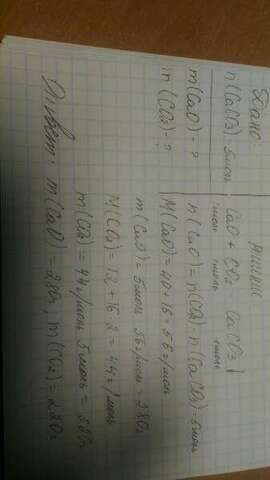 Дано:
n(CaCO3)=5моль
m(CaO)-?
m(CO2)-?
Решение
CaO + CO2 = CaCO3↓
1моль 1моль 1моль
n(CaO)=n(CO2)=n(CaCO3)=5моль
M(CaO)=40+16=56г/моль
m(CaO)=5моль·56г/моль=280г
M(CO2)=12+16·2=44г/моль
m(CO2)=44г/моль·5моль=220г
Ответ: m(CaO)=280г, m(CO2)=220г